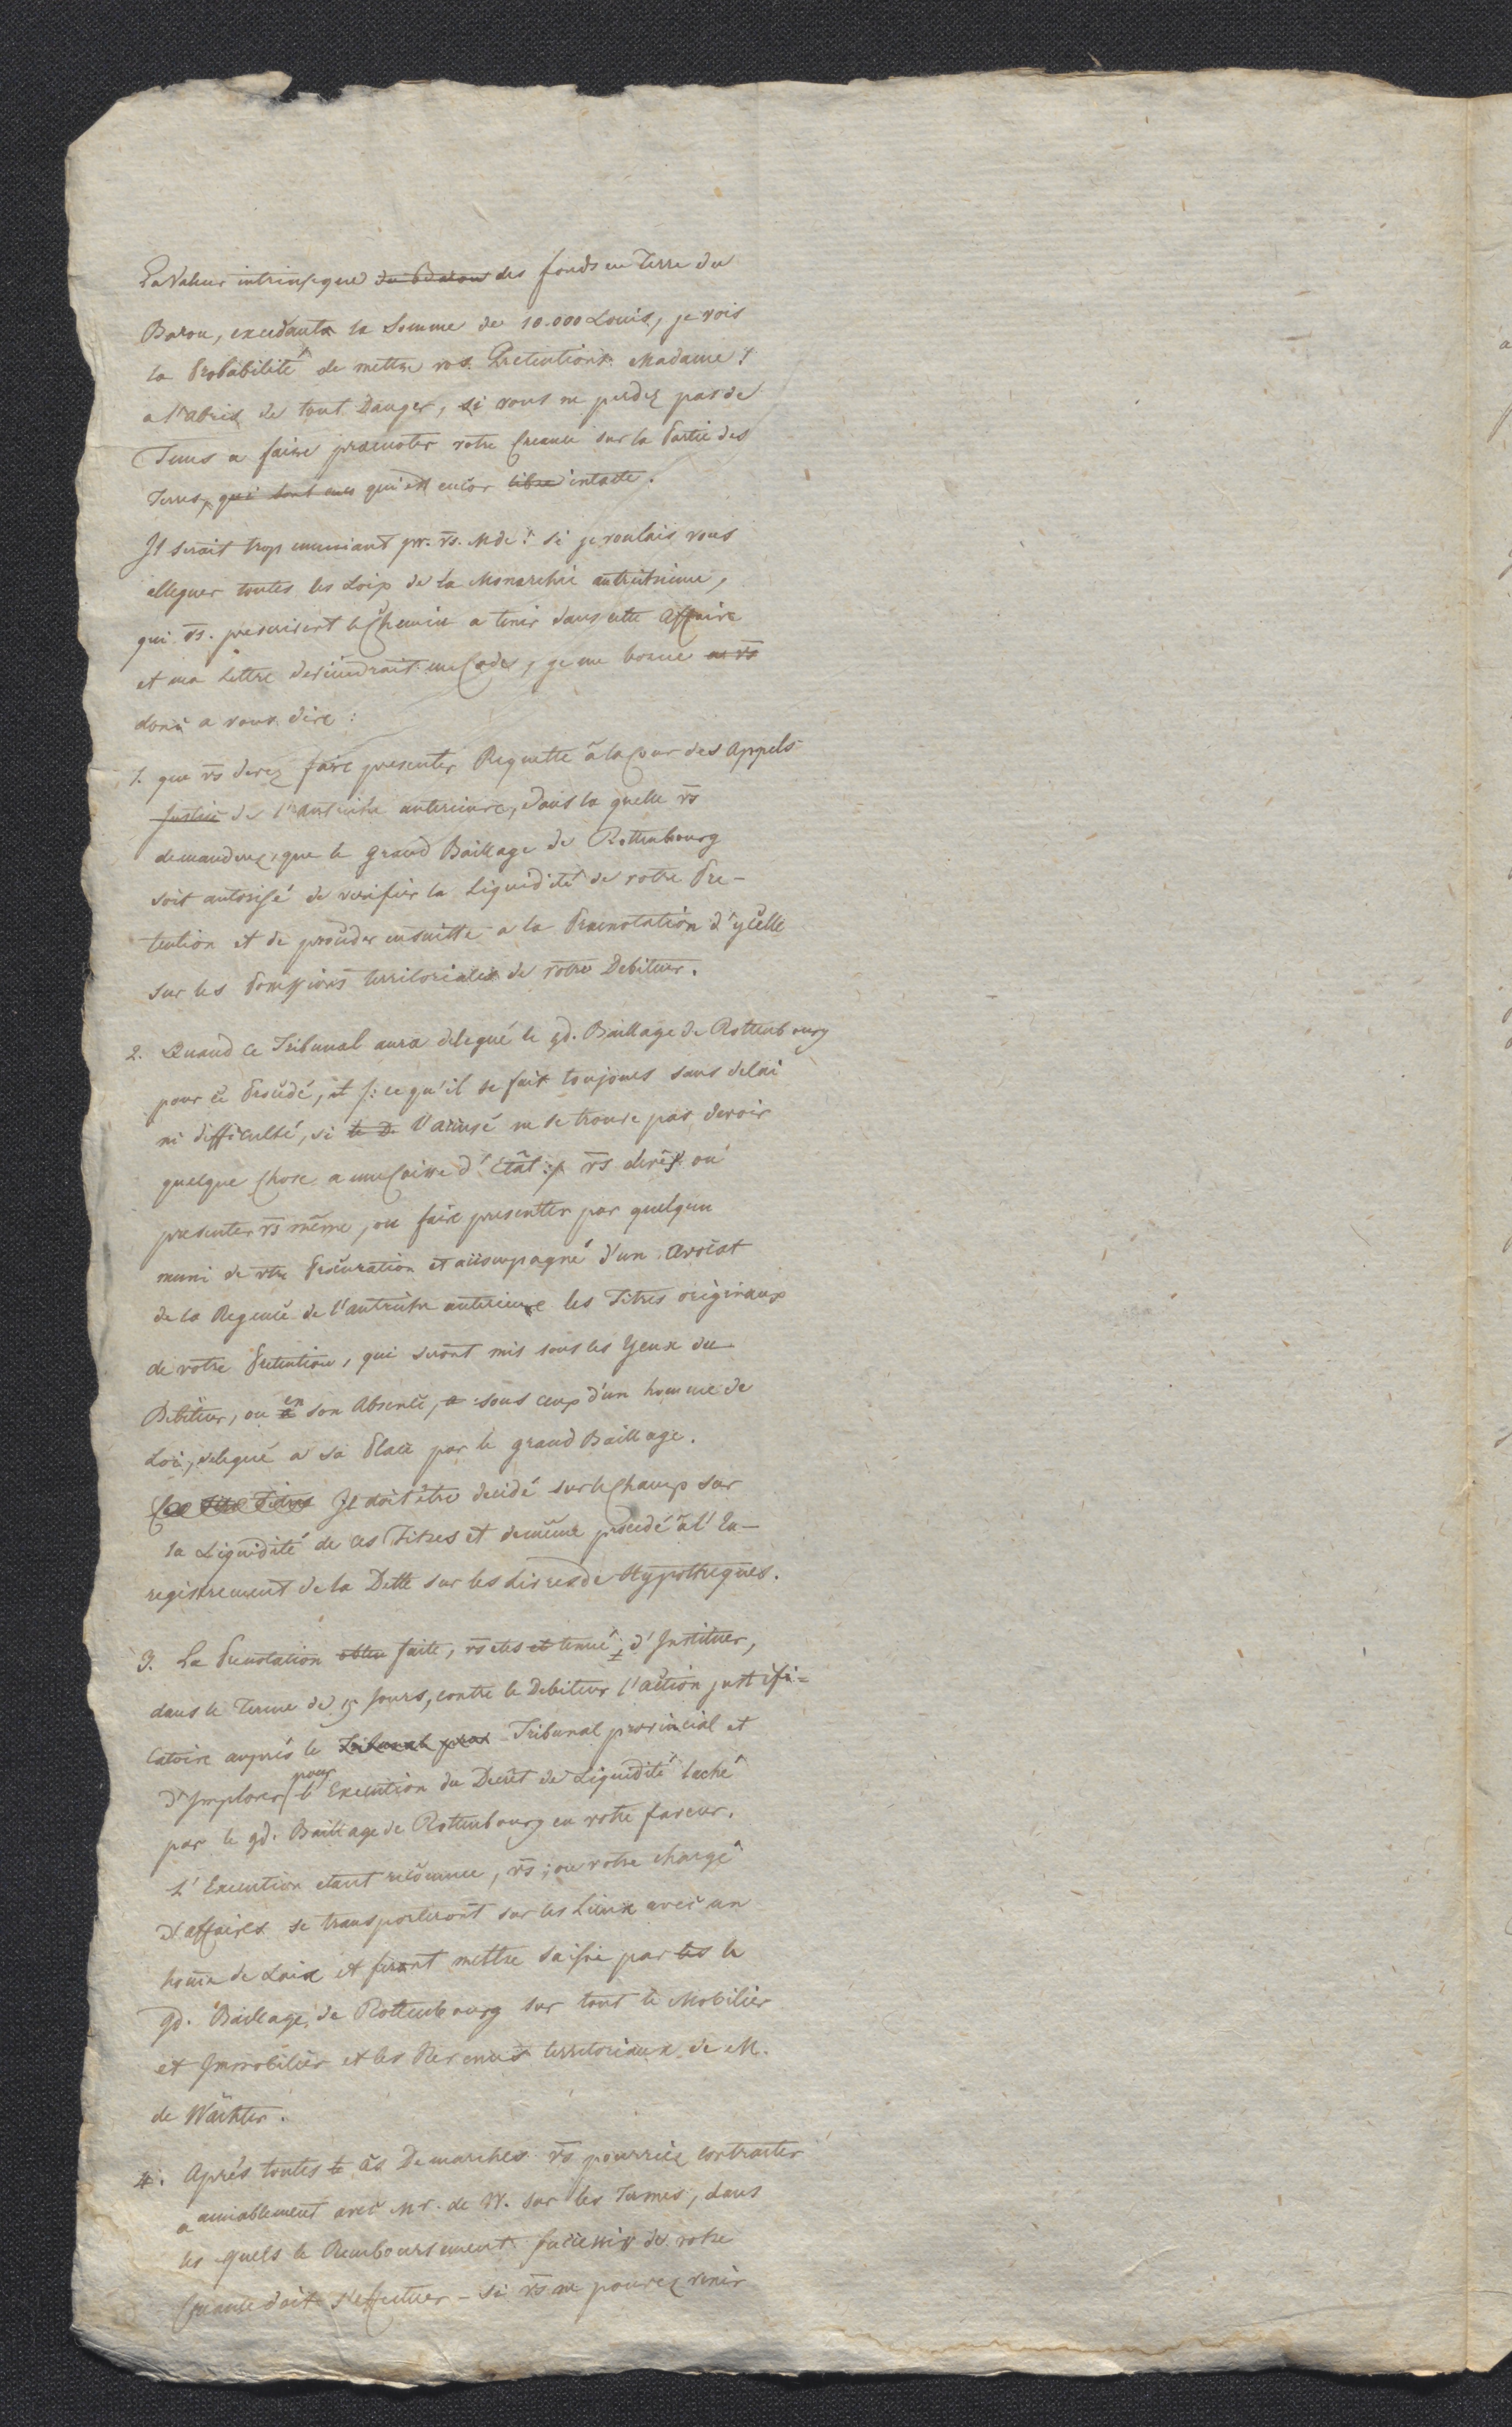 La Valeur intrinseque du Baron des fonds en Terre du
Baron, excedante la Somme de 10.000 Louis, je vois
la Probabilité de mettre vos Pretentions Madame!
a l'abris de tout Danger, si vous ne perdez pas de
Tems a faire prænoter votre Creance sur la Partie des
Terres, qui sont qui est encor libre intacte.
Il serait trop ennuiant pr. vs. Mde! si je voulais vous
alleguer toutes les Loix de la Monarchie autrichienne,
qui vs. prescrivent le Chemin a tenir dans cette Affaire
et ma Lettre deviendrait un Code, je me borne a vs
donc a vous dire:
1. que vs devez faire presenter Requette à la Cour des Appels
Justice de l'Autriche anterieure, dans la quelle vs
demandez, que le grand Baillage de Rottenbourg
soit autorisé de verifier la Liquidité de votre Pre-
tention et de proceder ensuitte a la Prænotation d'ycelle
sur les Possessions territoriales de votre Debiteur.
2. Quand ce Tribunal aura delegué le gd. Baillage de Rottenbourg
pour ce Procedé, et /: ce qu'il se fait toujours sans delai
ni difficulté, si le D. l'accusé ne se trouve pas devoir
quelque Chose a une Caisse d'Etat :/ vs devez ou
presenter vs même, ou faire presenter par quelqun
muni de vtre Procuration et accompagné d'un Avocat
de la Regence de l'autriche anterieure les Titres originaux
de votre Pretention, qui seront mis sous les Yeux du
Debiteur, ou a en son Absence, a sous ceux d'un homme de
Loi, delegué a sa Place par le grand Baillage.
Ces Titres Il doit être decidé sur le Champ sur
la Liquidité de ces Titres et de même procedé à l'En-
registrement de la Dette sur les Livres de Hypotheques.
3. La Prenotation obten faite, vs etes et tenue, d'Instituer,
dans le Terme de 15 Jours, contre le Debiteur l'action justifi-
catoire auprès le Tribunal prov Tribunal provincial et
d'Implorer pour l'Execution du Decret de Liquidité laché
par le gd. Baillage de Rottenbourg en votre faveur.
L'Execution etant reconnue, vs; ou votre chargé
d'affaires se transporteront sur les Lieux avec un
home de Loix et feront mettre saisie par les le
gd. Baillage de Rottenbourg sur tout le Mobilier
et Immobilier et les Revenus territoriaux de M.
de Wächter.
4. Après toutes le ces Demarches vs pourriez contracter
a amiablement avec Mr. de W. sur les Termes, dans
les quels le Remboursement successif de votre
Creance doit s'effectuer – Si vs ne pouvez venir